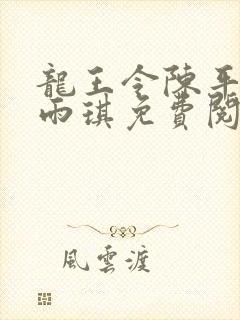 龍王令陳平
雨琪免費閱
風雲渡